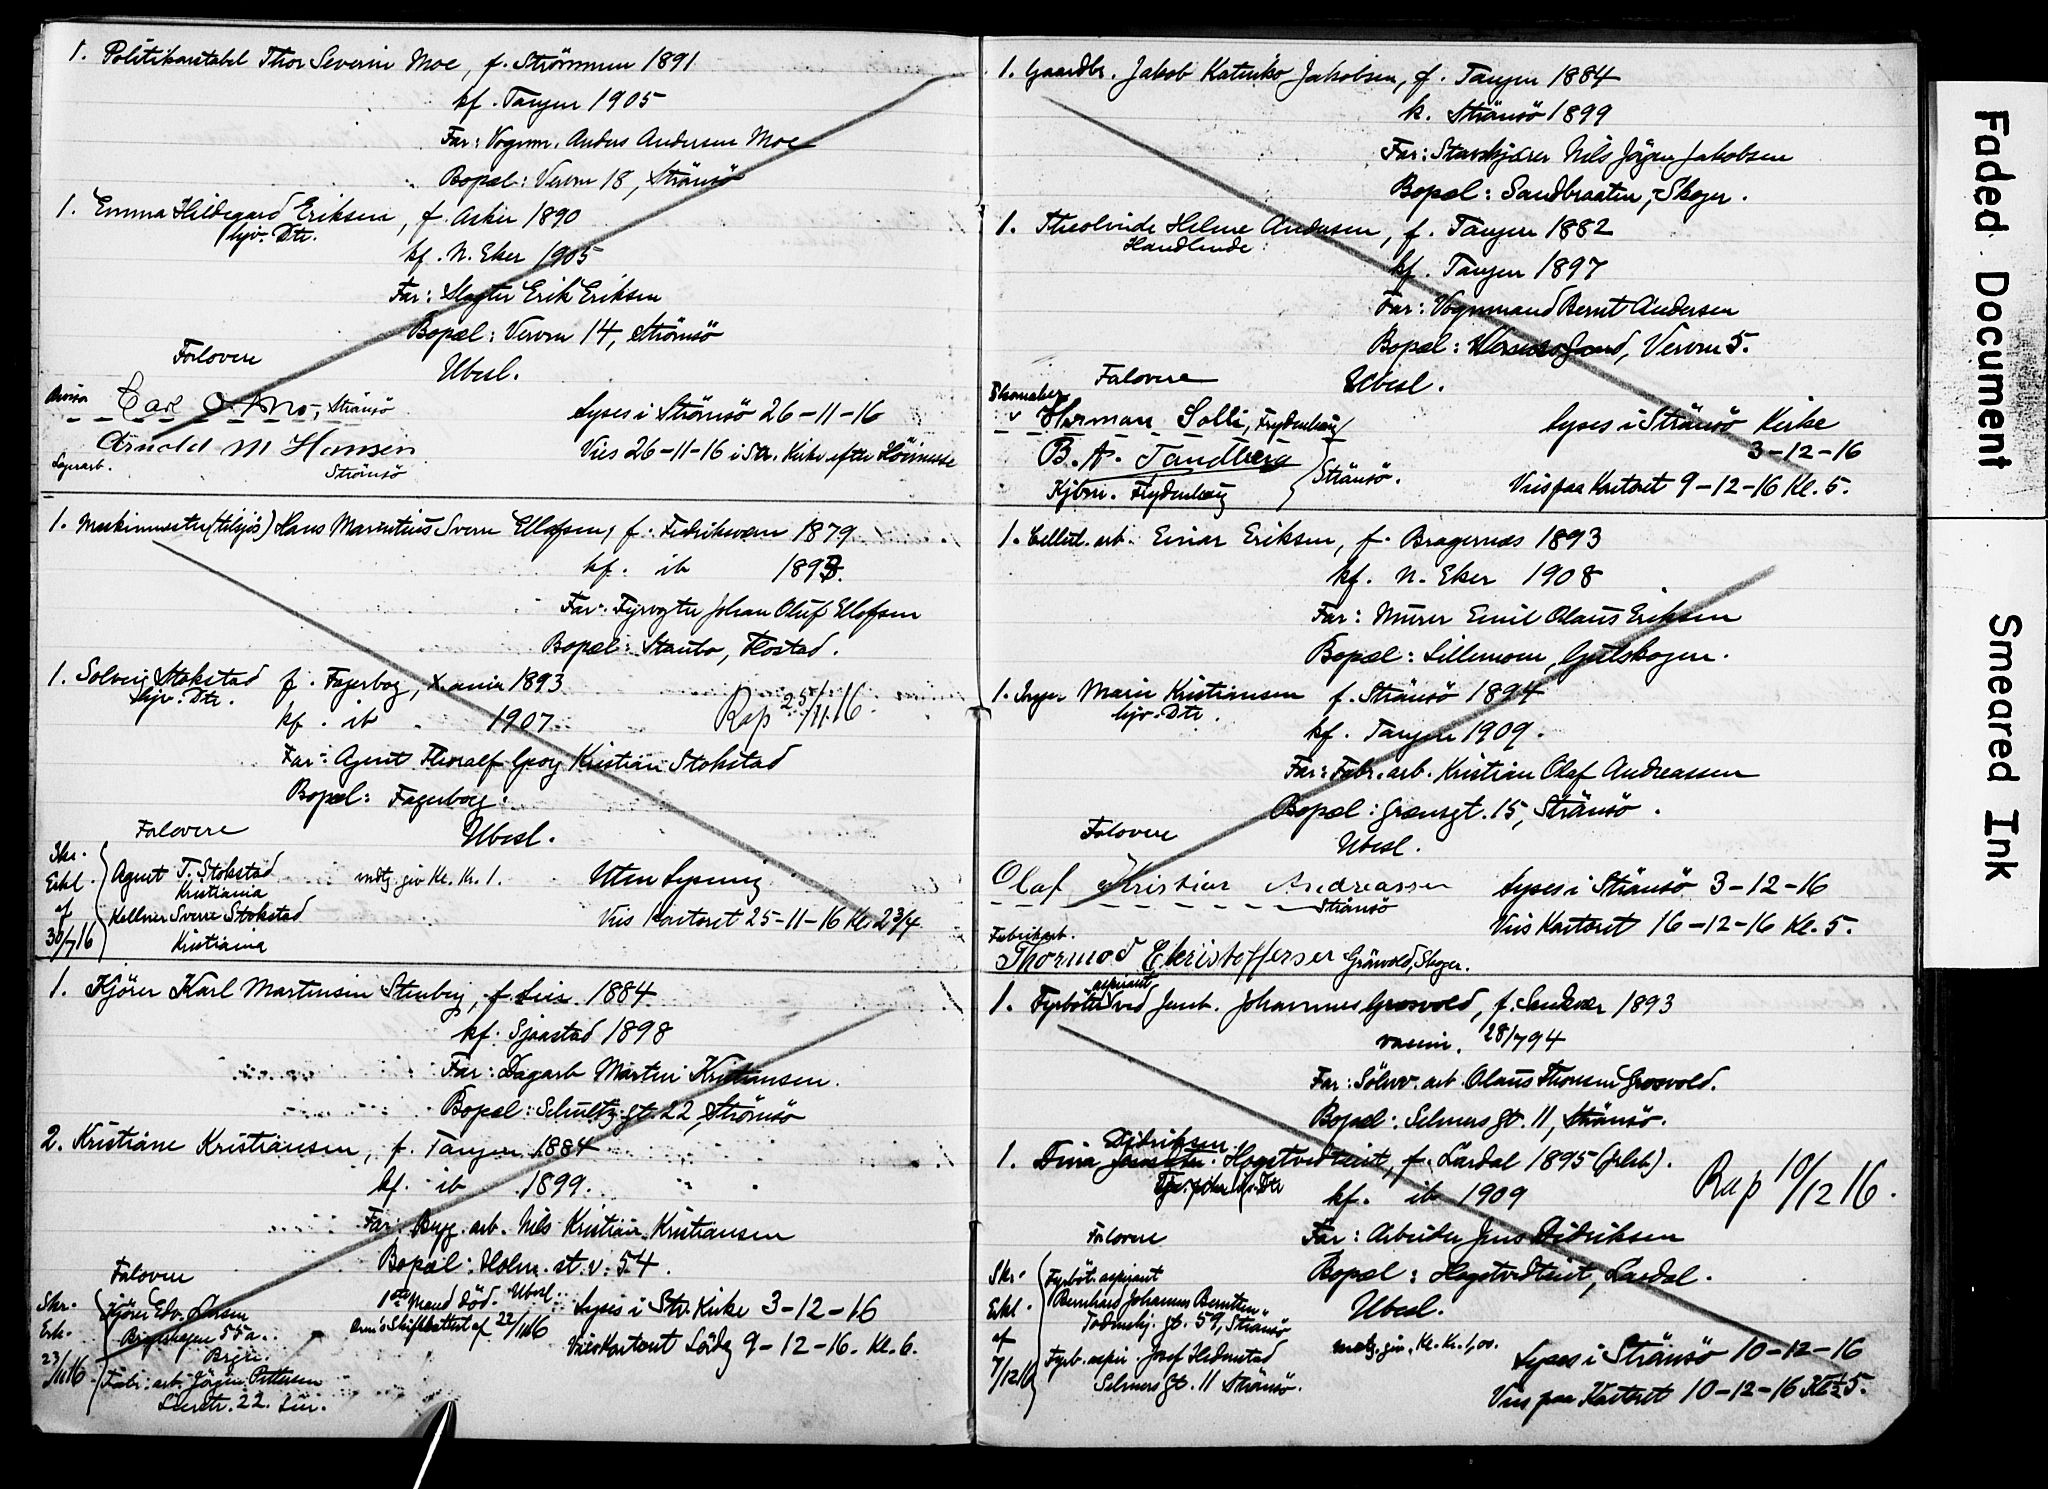 1. Politikonstabel Thor Severin Moe, f. Strömmen 1891
kf. Tangen 1905
Far: Vognm. Anders Andersen Moe
Bopæl: Verven 18, Strömsö
1. Emma Hildegard Eriksen, f. Asker 1890
hjv. Dtr.
kf. N. Eker 1905
Far: Slagter Erik Eriksen
Bopæl: Verven 14, Strömsö
Forlovere
Ubesl.
Carl O. Mo, Strömsö
Lyses i Strömsö 26-11-16
Arnold M Hansen
Lagerarb. Strömsö
Vies 26-11-16 i Str. Kirke efter Höimesse
1. Maskinmester (tilsjös) Hans Marentius Sverre Ellefsen, f. Fredriksværn 1879
kf. ib 1893.
Far: Fyrvogter Johan Oluf Ellefsen
Bopæl: Stanto, Flostad.
1. Solveig Stokstad f. Fagerborg, X.ania 1893
hjv. Dtr.
kf. ib 1907
Rap 25/11.16.
Far: Agent Thoralf Georg Kristian Stokstad
Bopæl: Fagerborg.
Forlovere
Ubesl.
Skr. Erkl. af 30/7 16
Agent T. Stokstad
Kristiania
Kellner Sverre Stokstad
Kristiania
mdtg. giv Kl. Kr. 1.
Uten Lysning
Vies Kontoret 25-11-16 Kl. 2 3/4.
1. Kjörer Karl Martinsen Stenberg, f. Lier 1884
kf. Sjaastad 1898
Far: Dagarb Martin Kristiansen.
Bopæl: Schultz gt. 22, Strömsö
2. Kristiane Kristiansen, f. Tangen 1884
kf. ib 1899.
Far: Bryg. arb. Nils Kristian Kristiansen
Bopæl: Holm. st. v. 54.
Forlovere
1ste Mand död. Ubesl.
Lyses i Str. Kirke 3-12-16
Skr. Erk. 23/11 16
Kjörer Edv. Larsen
55a.
Brgn.
Skifteattest af 22/11 16
Vies Kontoret Lördag 9-12-16. Kl. 6.
Fabr. arb. Jörgen Pettersen
22. Lier.
1. Gaardbr. Jakob Katinko Jakobsen, f. Tangen 1884
k. Strömsö 1899
Far: Stavskjærer Nils Jörgen Jakobsen
Bopæl: Sandbraaten, Skoger.
1. Theolinde Helene Andersen, f. Tangen 1882
Handlende
kf. Tangen 1897
Far: Vognmand Bernt Andersen
Bopæl: Verven 5.
Forlovere
Ubesl.
Herman Solli, Frydenhaug
Lyses i Strömsö Kirke
3-12-16
B. A. Tandberg
Strömsö.
Kjbm. Frydenhaug
Vies paa Kontoret 9-12-16 Kl. 5.
1. Cellul. arb. Einar Eriksen, f. Bragernæs 1893
kf. N. Eker 1908
Far: Murer Emil Olaus Eriksen
Bopæl: Lillemoen, Gulskogen.
1. Inger Marie Kristiansen f. Strömsö 1894
hjv. Dtr.
kf. Tangen 1909.
Far: Fabr. arb. Kristian Olaf Andreassen
Bopæl: Grænsgt. 15, Strömsö.
Forlovere
Ubesl.
Olaf Kristian Andreassen
Strömsö
Lyses i Strömsö 3-12-16
Vies Kontoret 16-12-16 Kl. 5.
Fabrikarb.
Thormod Ekristoffersen Grönvold, Skoger.
1. Fyrböter aspirant ved Jernb. Johannes Grosvold, f. Sandsvær 1893
vaccin. 28/7 94
Far: Sölvv. arb. Olaus Thorsen Grosvold.
Bopæl: Selmers gt. 11, Strömsö.
1. Dina Didriksen Hogstvedteiet, f. Lardal 1895 (Jrlsb).
kf. ib 1909
Rap 10/12 16.
Forlovere
Far: Arbeider Jens Didriksen
Bopæl: Hogstvedteiet, Lardal.
Ubesl.
Skr. Erkl. af 7/12 16
Fyrböt. aspirant
Bernhard Johannes Berntsen
Tordenskj. gt. 59, Strömsö
Fyrb. aspir. Josef Hedenstad
Selmers gt. 11 Strömsö.
mdtg. giv. Kl. Kr. 1,00.
Lyses i Strömsö 10-12-16
Vies paa Kontoret 10-12-16 Kl ½5.
Faded Document
Smeared Ink